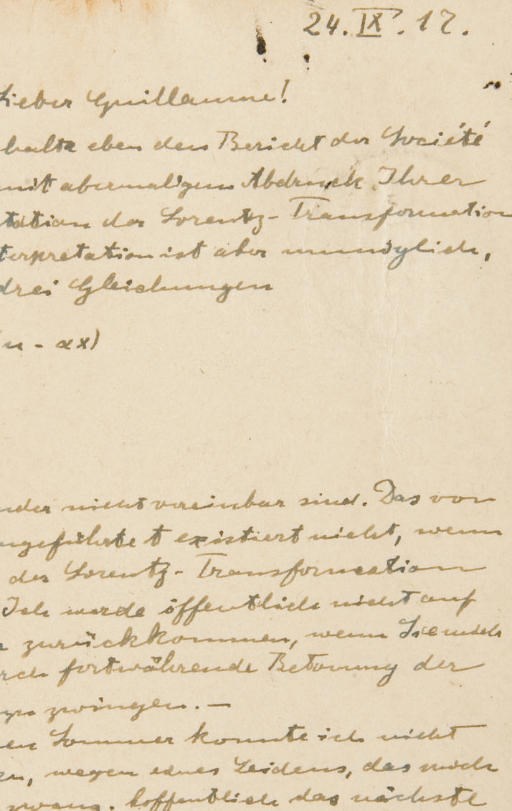 24. IX. 17.
Lieber Guillaume!
halte eben den Bericht der Société
mit abermaligem Abdruck Ihrer
tation der Lorentz-Transformation
terpretation ist aber unmöglich,
drei Gleichungen
(u - αx)
nder nicht vereinbar sind. Das von
ngeführte t existiert nicht, wenn
der Lorentz-Transformation
Ich werde öffentlich nicht auf
zurückkommen, wenn Sie mich
rch fortwährende Betonung der
zwingen. —
en Sommer konnte ich nicht
en, wegen eines Leidens, das mich
zwang. Hoffentlich das nächste